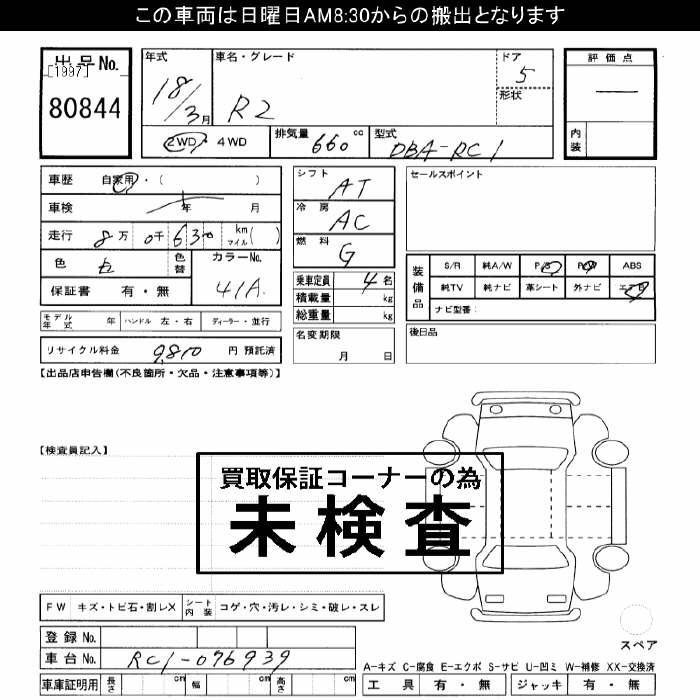 この車両は日曜日AM8:30からの搬出となります
出品No. 年式 車名・グレード ドア 5 評価点
[1997] 形状
80844 18/3月 R2 —
2WD・4WD 排気量 660 cc 型式 DBA-RC1 内装
車歴 自家用・( ) シフト AT セールスポイント
車検 年 月 冷房 AC
走行 8万 0千 630 km マイル( ) 燃料 G
色 白 色替 カラーNo. 41A
保証書 有・無
乗車定員 4名
積載量 kg
総重量 kg
装備品 S/R 純A/W P/S P/W ABS
純TV 純ナビ 革シート 外ナビ エアB
ナビ型番:
モデル年式 年 ハンドル 左・右 ディーラー・並行
名変期限 月 日
後日品
リサイクル料金 9,810 円 預託済
【出品店申告欄(不良箇所・欠品・注意事項等)】
【検査員記入】
買取保証コーナーの為
未検査
FW キズ・トビ石・割レX シート内装 コゲ・穴・汚レ・シミ・破レ・スレ
登録No.
車台No. RC1-076939
スペア
A-キズ C-腐食 E-エクボ S-サビ U-凹ミ W-補修 XX-交換済
車庫証明用 長さ cm 幅 cm 高さ cm 工具 有・無 ジャッキ 有・無